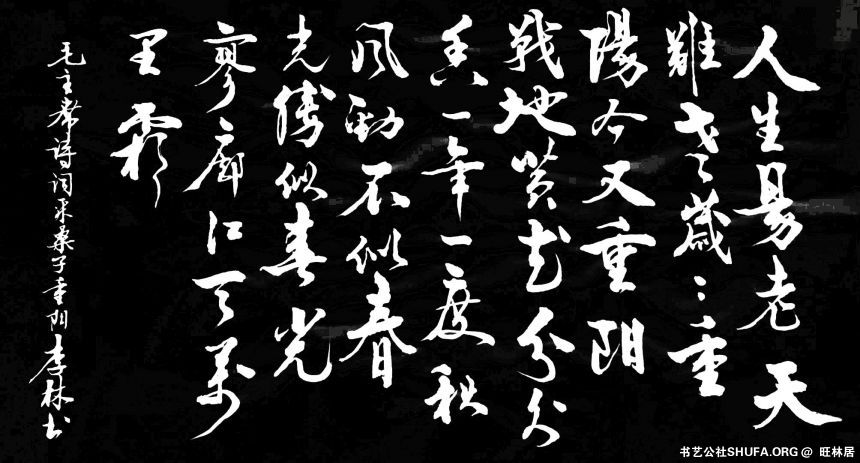 人生易老天
難老歲々重
陽今又重阳
戰地黄花分外
香一年一度秋
風勁不似春
光勝似春光
寥廓江天萬
里霜
毛主席詩詞采桑子重阳 李林书
书艺公社SHUFA.ORG @ 旺林居